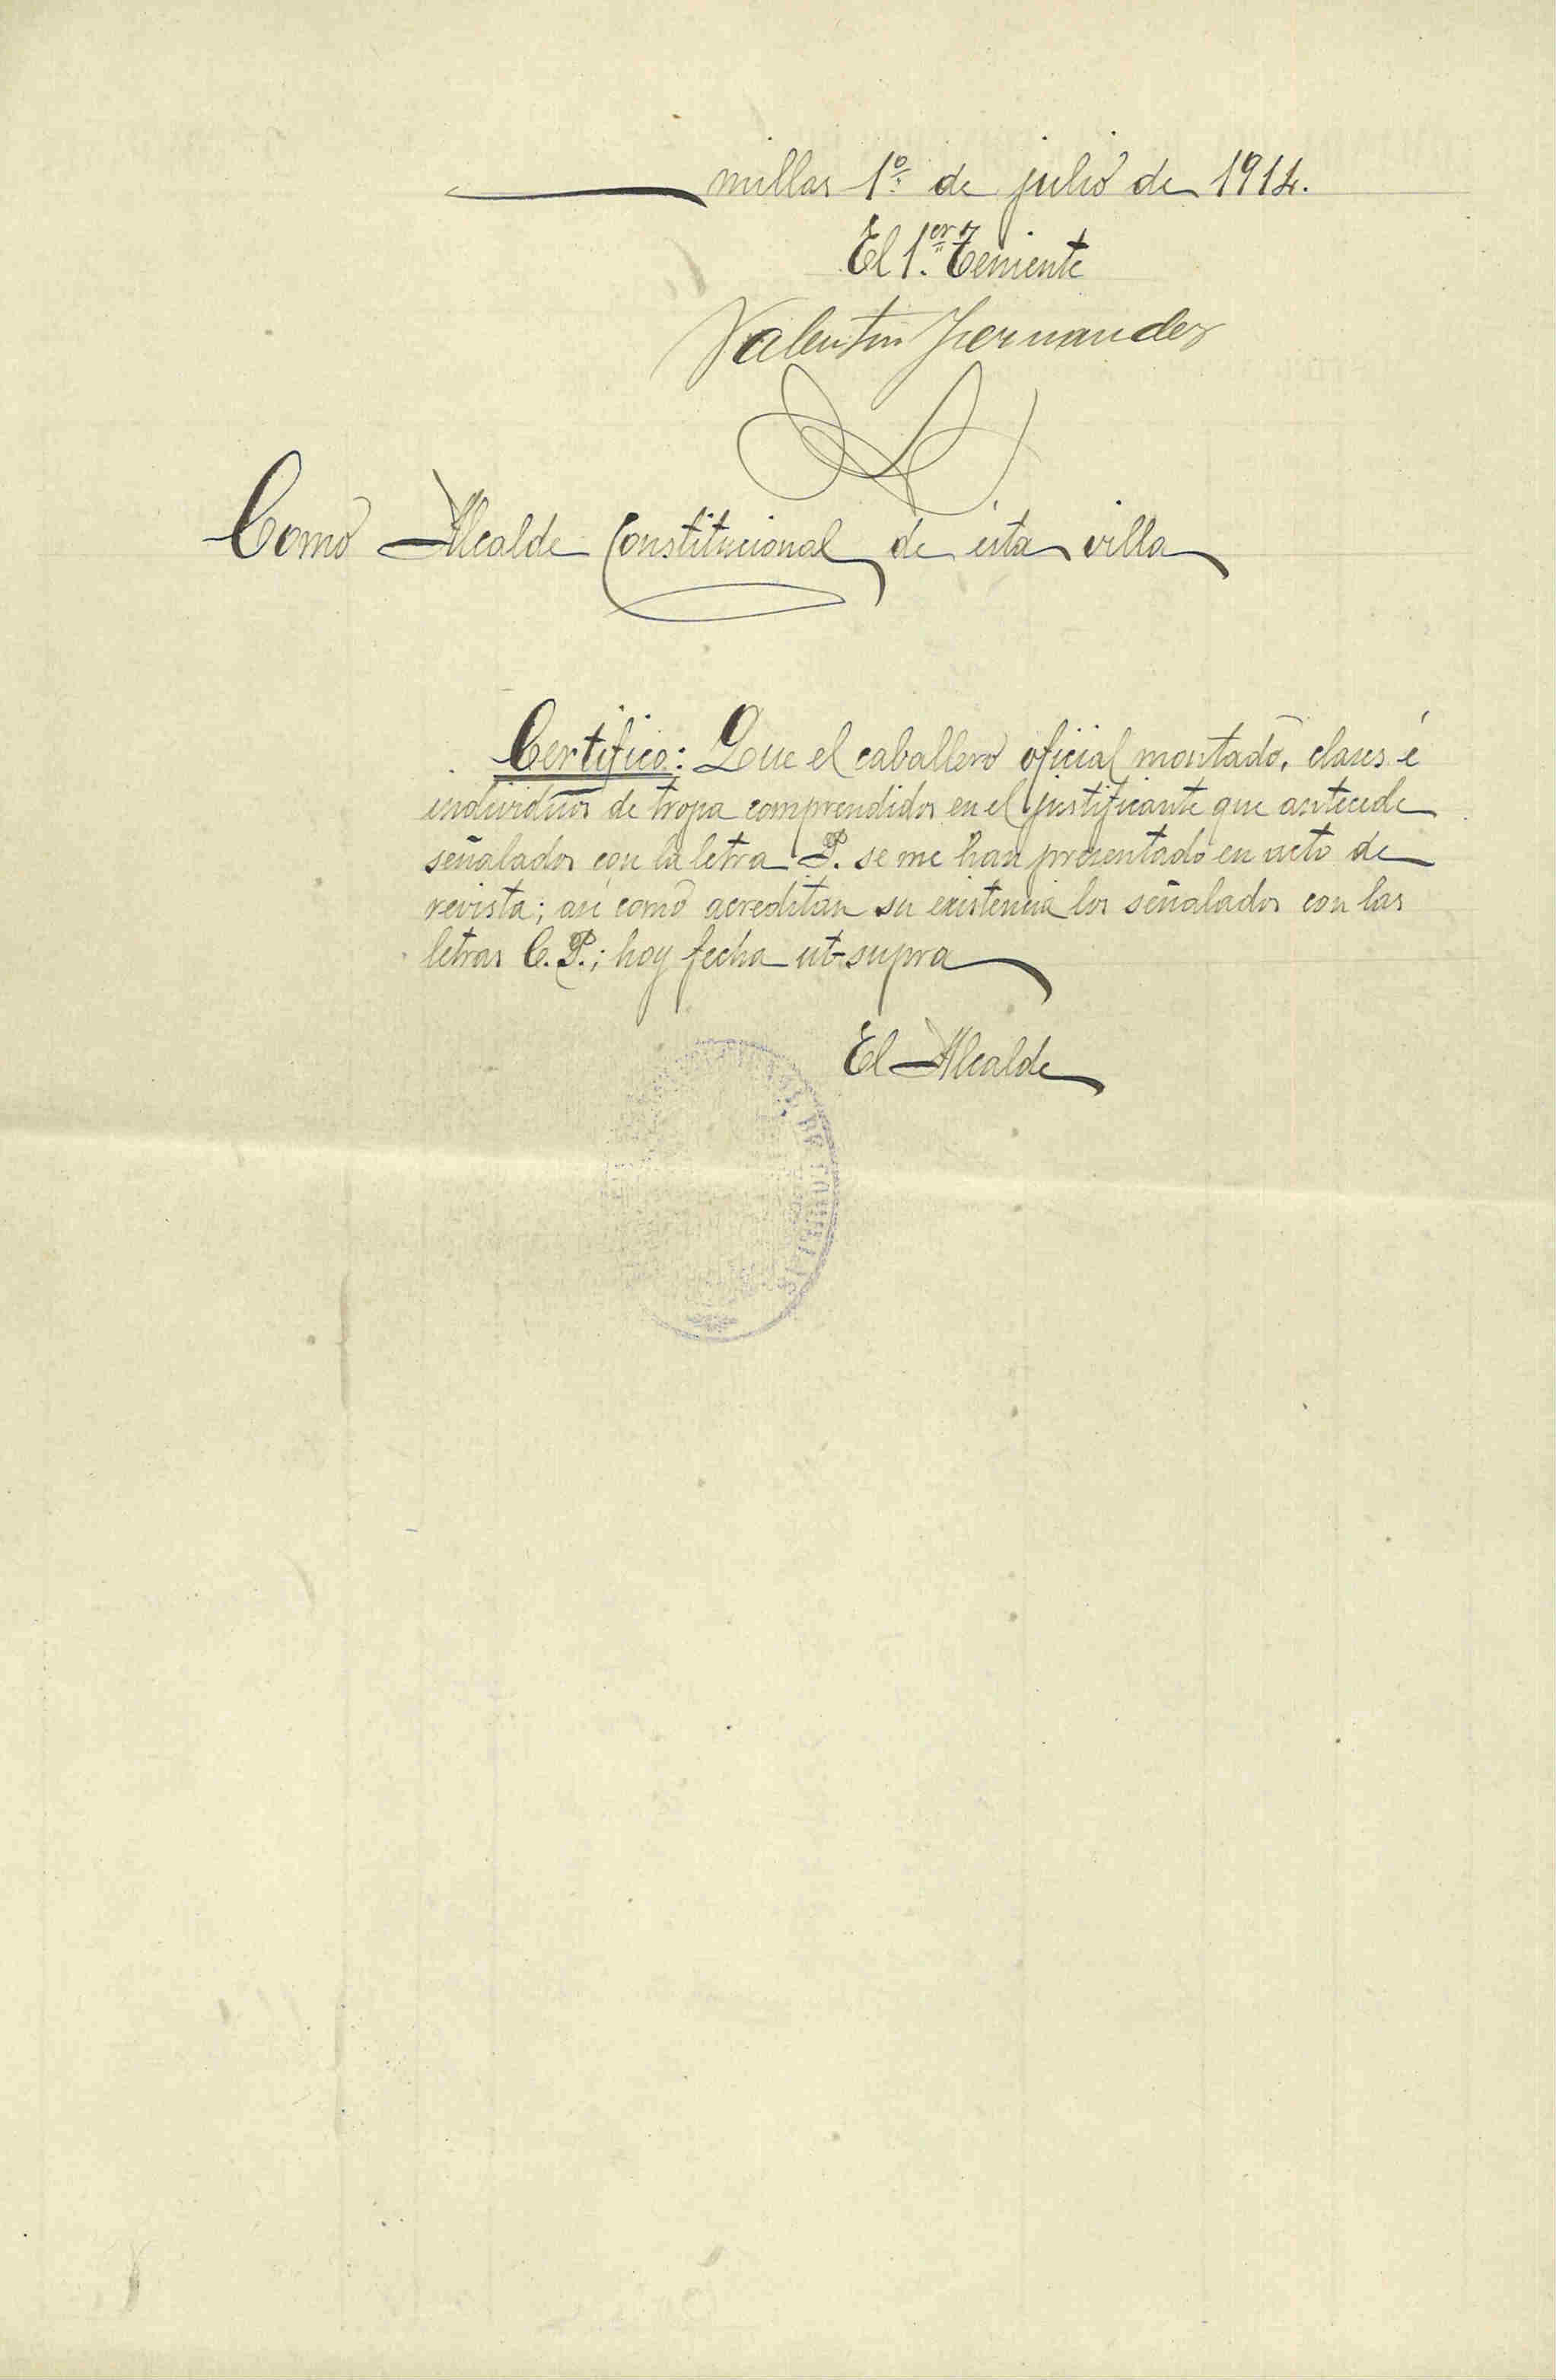 millas 1º de julio de 1914.
El 1.er Teniente
Valentin Hernandez
Como Alcalde Constitucional de ésta villa
Certifico: Que el caballero oficial montado, clases é
individuos de tropa comprendidos en el justificante que antecede
señalados con la letra P. se me han presentado en acto de
revista; asi como acreditan su existencia los señalados con las
letras C. P.; hoy fecha ut-supra
El Alcalde
DE